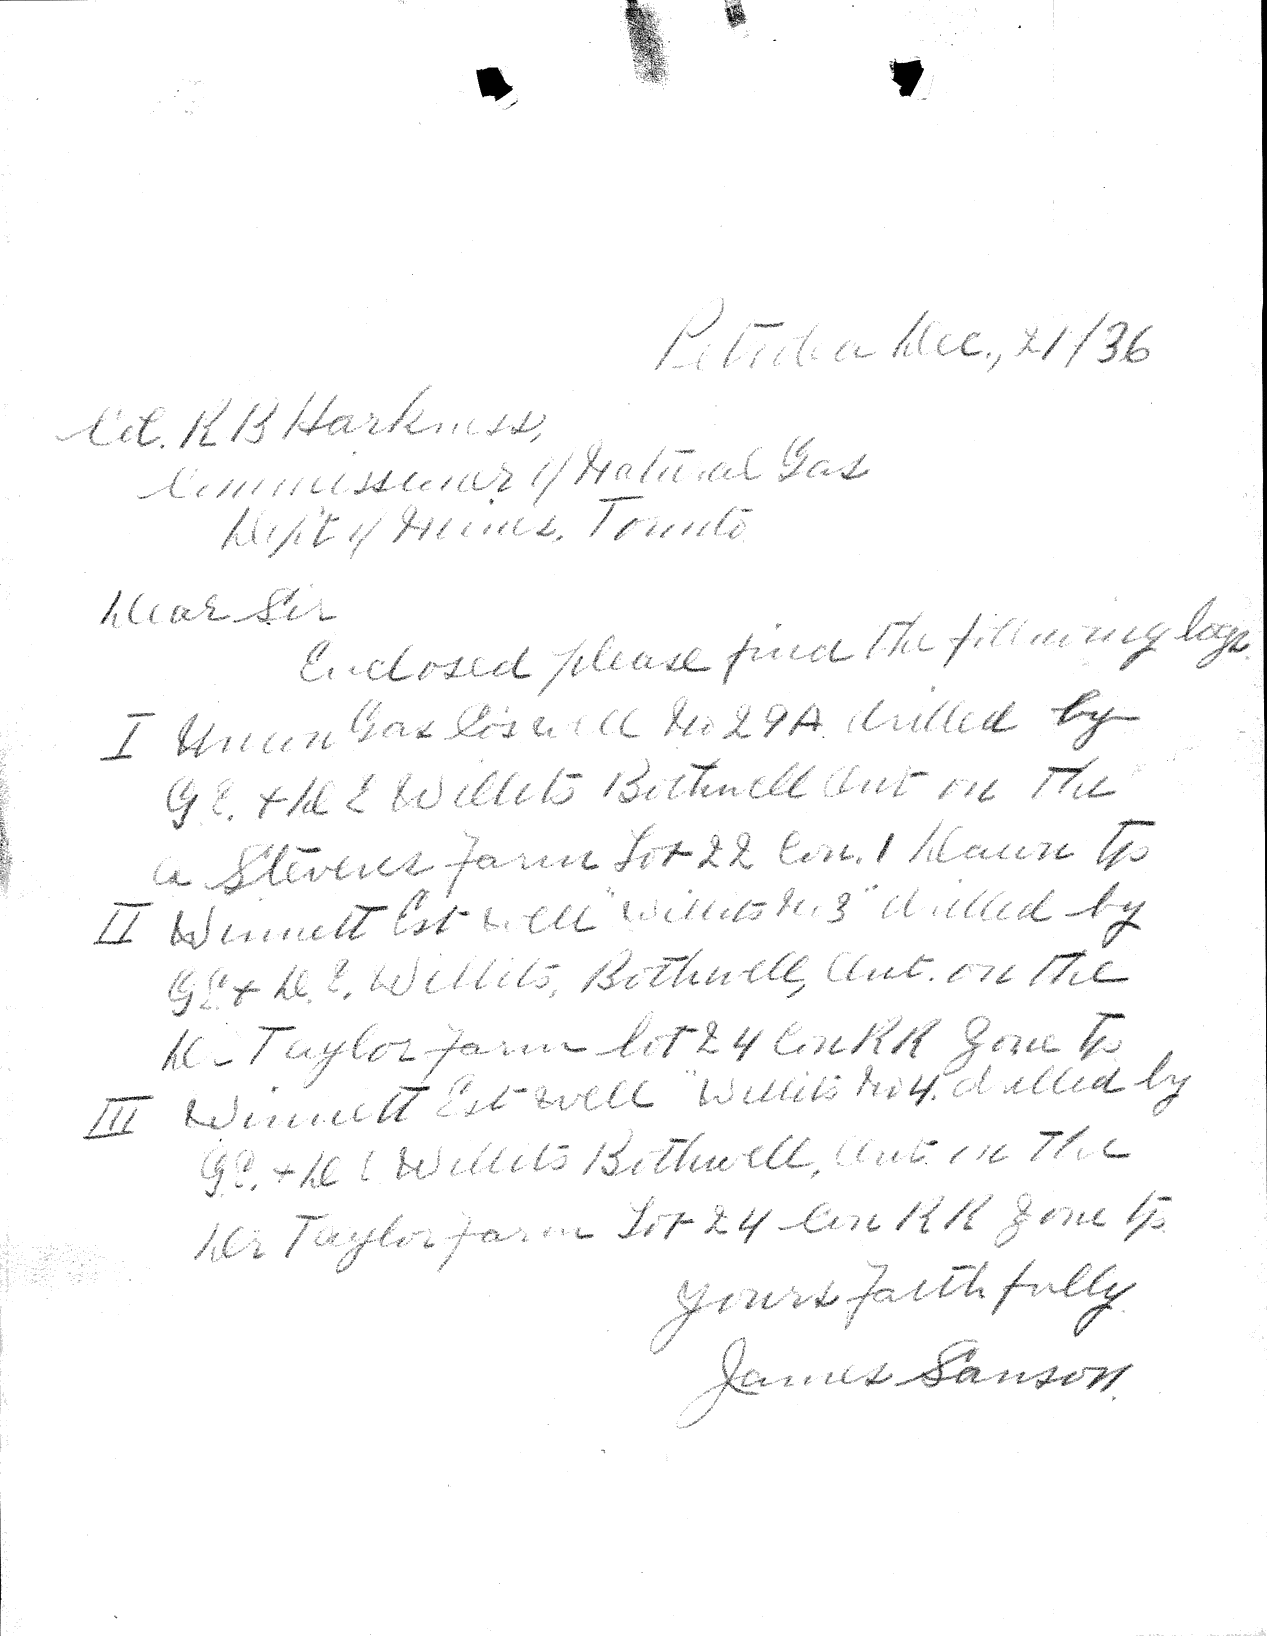 Petrolia Dec., 21/36
Col. R B Harkness,
Commissioner of Natural Gas
Dep't of Mines, Toronto
Dear Sir
Enclosed please find the following logs.
I Union Gas Co's well No 29A drilled by
G E. + D E Willits Bothwell Ont on the
a Stevens Farm Lot 22 Con. 1 Dawn Tp
II Winnett Est well "Willits No 3" drilled by
G E + D. E. Willits, Bothwell, Ont. on the
D- Taylor farm lot 24 Con R R Zone Tp
III Winnett Est well "Willits No 4. drilled by
G E. + D E Willits Bothwell, Ont. on the
Dr Taylor farm Lot 24 Con R R Zone Tp.
Yours Faithfully
James Sanson.